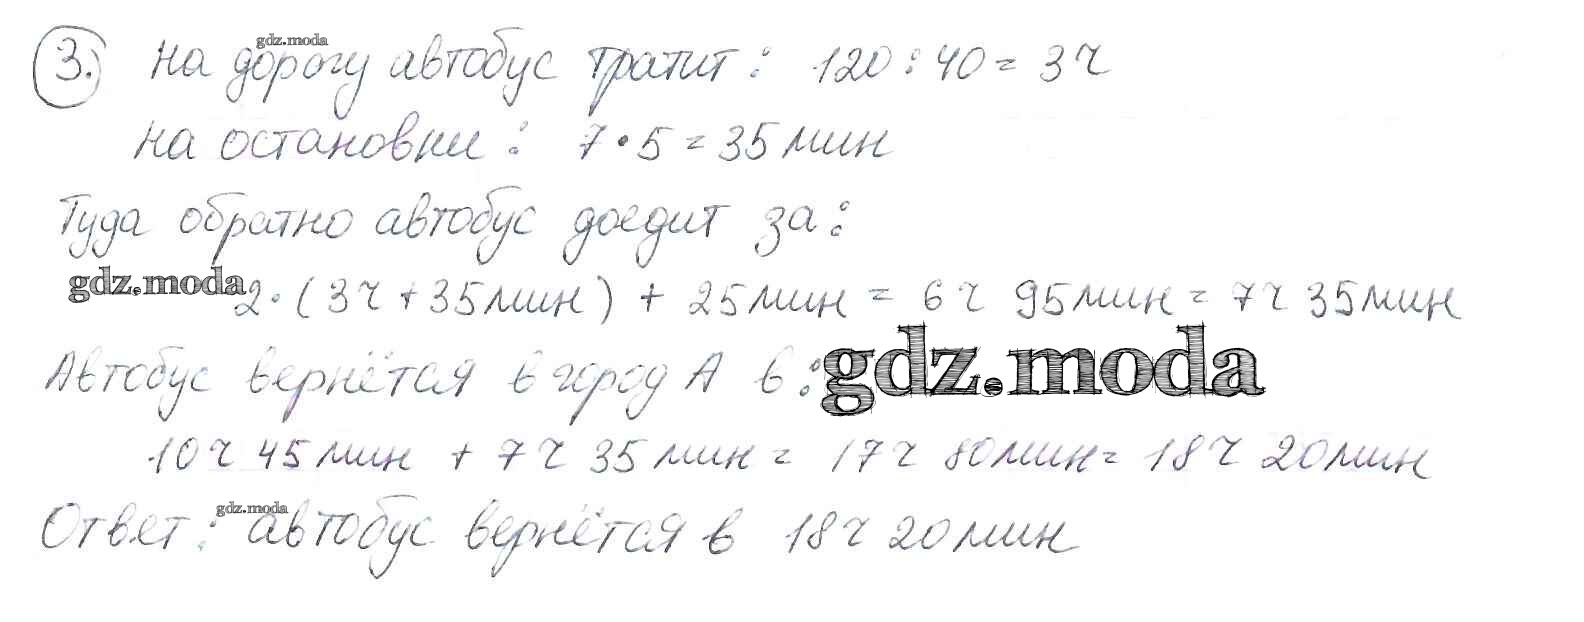 gdz.moda
3. На дорогу автобус тратит: 120:40 = 3ч
На остановки: 7·5 = 35мин
Туда обратно автобус доедит за:
gdz.moda
2·(3ч + 35мин) + 25мин = 6ч 95мин = 7ч 35мин
Автобус вернётся в город А в:
gdz.moda
10ч 45мин + 7ч 35мин = 17ч 80мин = 18ч 20мин
gdz.moda
Ответ: автобус вернётся в 18ч 20мин